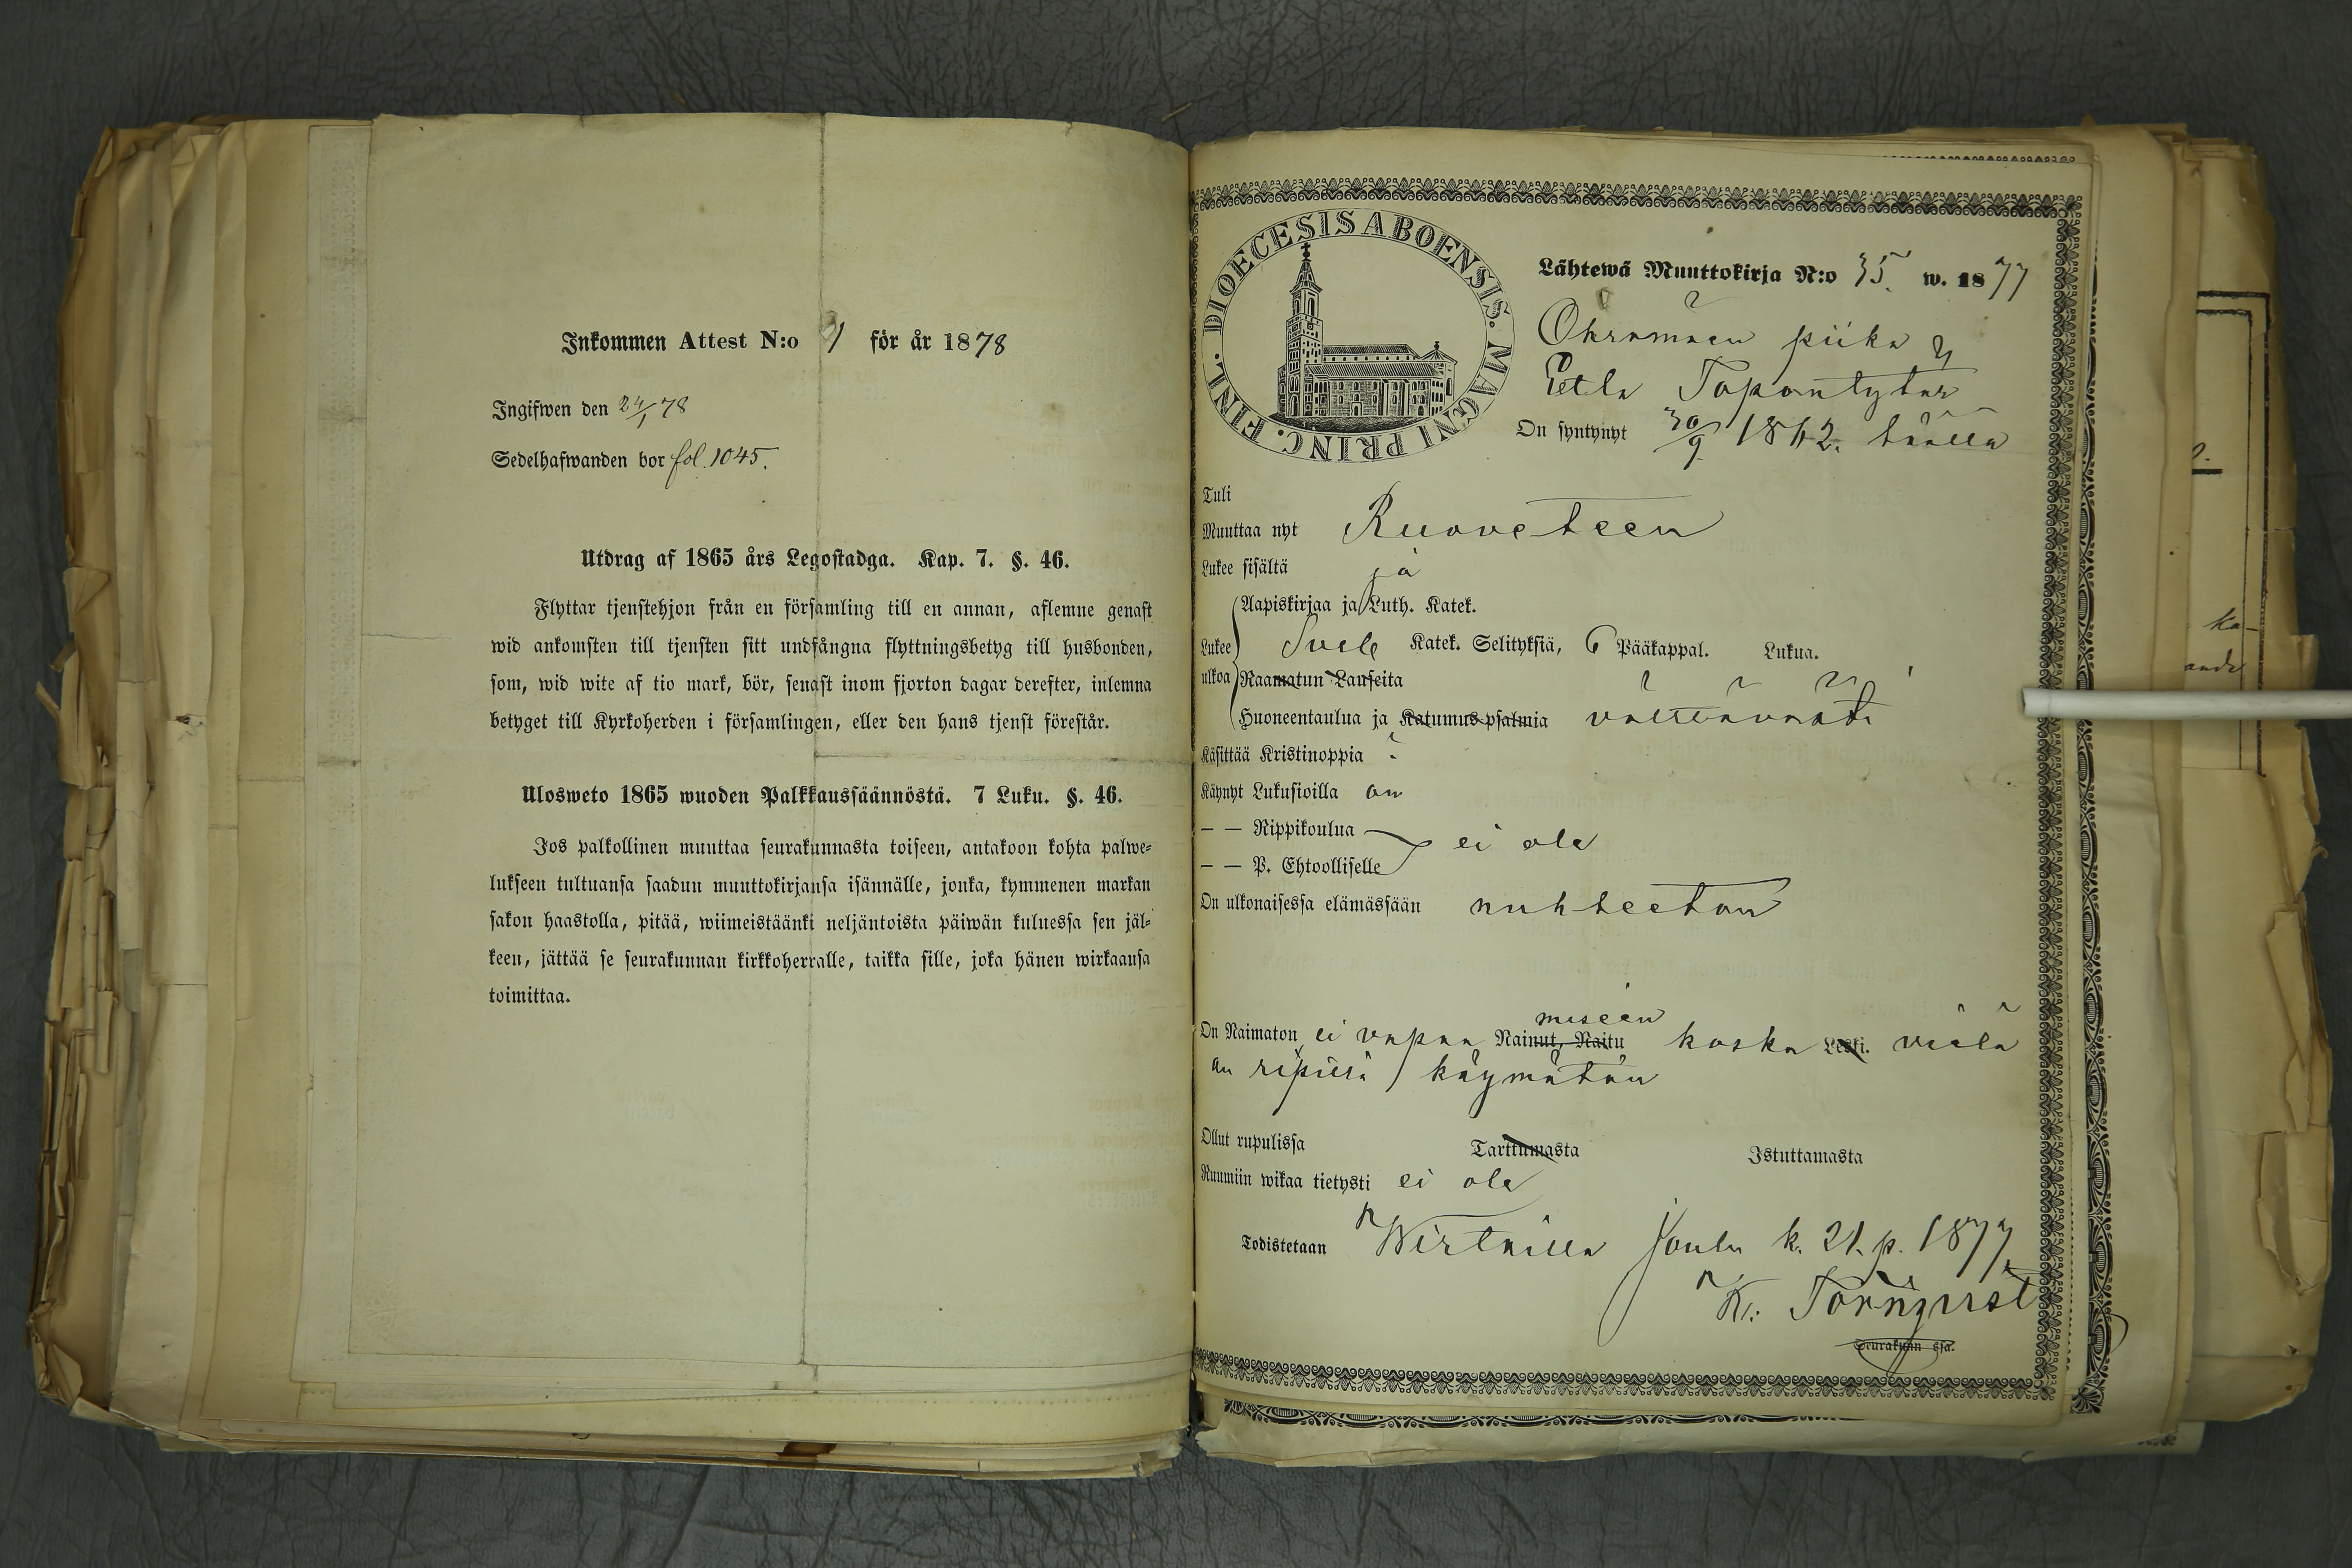 Inkommen Attest N:o för år 1878
Ingifwen den 24/1 78
Sedelhafwanden bor fol. 1045.
Utdrag af 1865 års Legostadga. Kap. 7. §. 46.
Flyttar tjenstehjon från en församling till en annan, aflemne genast
wid ankomsten till tjensten sitt undfångna flyttningsbetyg till husbonden,
som, wid wite af tio mark, bör, senast inom fjorton dagar derefter, inlemna
betyget till Kyrkoherden i församlingen, eller den hans tjenst förestår.
Ulosweto 1865 wuoden Palkkaussäännöstä. 7 Luku. §. 46.
Jos palkollinen muuttaa seurakunnasta toiseen, antakoon kohta palwe=
lukseen tultuansa saadun muuttokirjansa isännälle, jonka, kymmenen markan
sakon haastolla, pitää, wiimeistäänki neljäntoista päiwän kuluessa sen jäl=
keen, jättää se seurakunnan kirkkoherralle, taikka sille, joka hänen wirkaansa
toimittaa.
DIOECESIS ABOENSIS. MAGNI PRINC. FINL.
Lähtewä Muuttokirja N:o 35. w. 1877
piika
Eetla Tapontytär
On syntynyt 30/9 1862. täällä
Tuli
Muuttaa nyt Ruoveteen
Lukee sisältä ja
Aapiskirjaa ja Luth. Katek.
Lukee Svele Katek. Selityksiä, 6 Pääkappal. Lukua.
ulkoa Raamatun Lauseita
Huoneentaulua ja Katumus-psalmia välttävästi
Käsittää Kristinoppia
Käynyt Lukusioilla on
— — Rippikoulua
— — P. Ehtoolliselle ei ole
On ulkonaisessa elämässään nuhteeton
On Naimaton ei vapaa Nainut, Naitu koska Leski. vielä
on ripillä käymätön
Ollut rupulissa Tarttumasta Istuttamasta
Ruumiin wikaa tietysti ei ole
Todistetaan Wirtailla Joulu k. 21. p. 1877
K. Törnqvist
Seurakunn ssa.